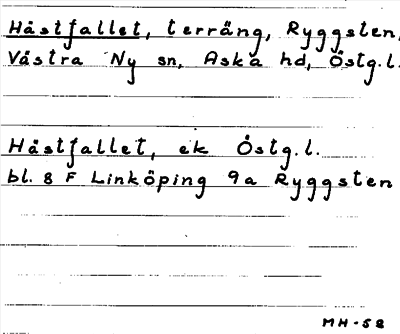 Hästfallet, terräng, Ryggsten,
Västra Ny sn, Aska hd, Östg.l.
Hästfallet, ek Östg.l.
bl. 8 F Linköping 9a Ryggsten
MH-58